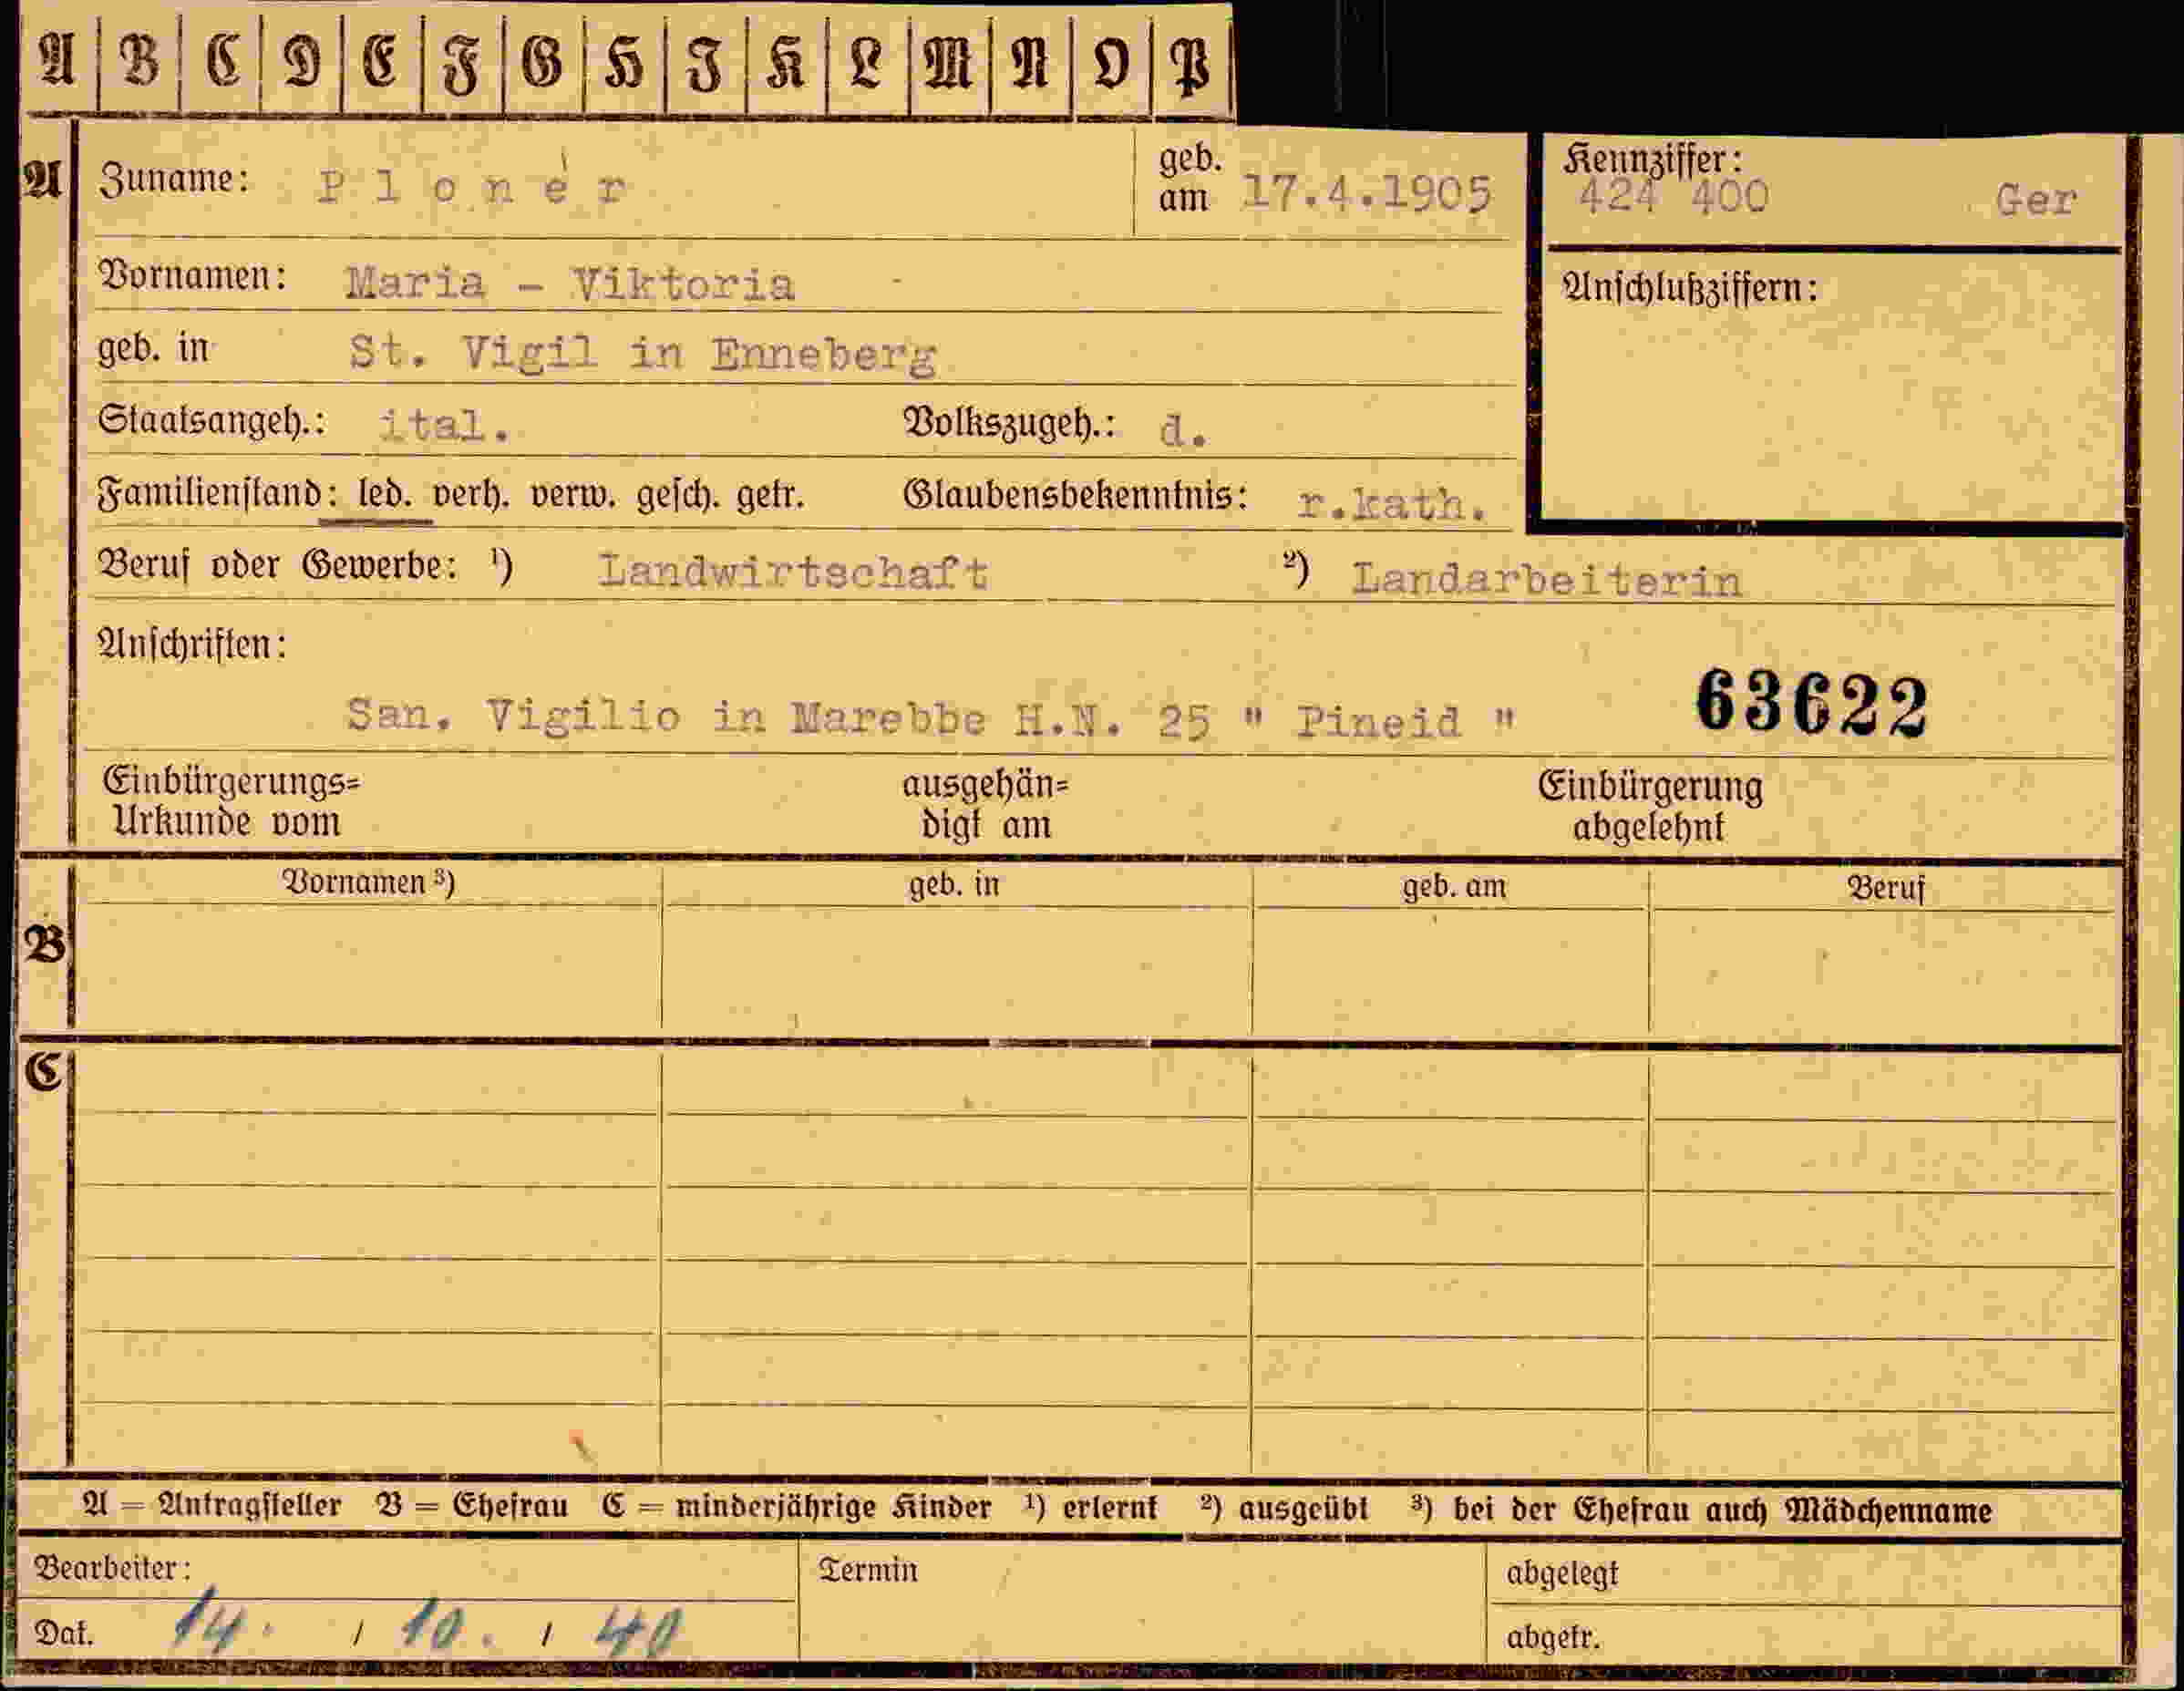 A B C D E F G H I K L M N O P
A Zuname: Ploner geb. am 17.4.1905 Kennziffer: 424 400 Ger
Vornamen: Maria - Viktoria Anschlußziffern:
geb. in St. Vigil in Enneberg
Staatsangeh.: ital. Volkszugeh.: d.
Familienstand: led. verh. verw. gesch. getr. Glaubensbekenntnis: r.kath.
Beruf oder Gewerbe: ¹) Landwirtschaft ²) Landarbeiterin
Anschriften:
San. Vigilio in Marebbe H.N. 25 " Pineid " 63622
Einbürgerungs= ausgehän= Einbürgerung
Urkunde vom digt am abgelehnt
Vornamen ³) geb. in geb. am Beruf
B
C
A = Antragsteller B = Ehefrau C = minderjährige Kinder ¹) erlernt ²) ausgeübt ³) bei der Ehefrau auch Mädchenname
Bearbeiter: Termin abgelegt
Dat. 14. / 10. / 40 abgetr.